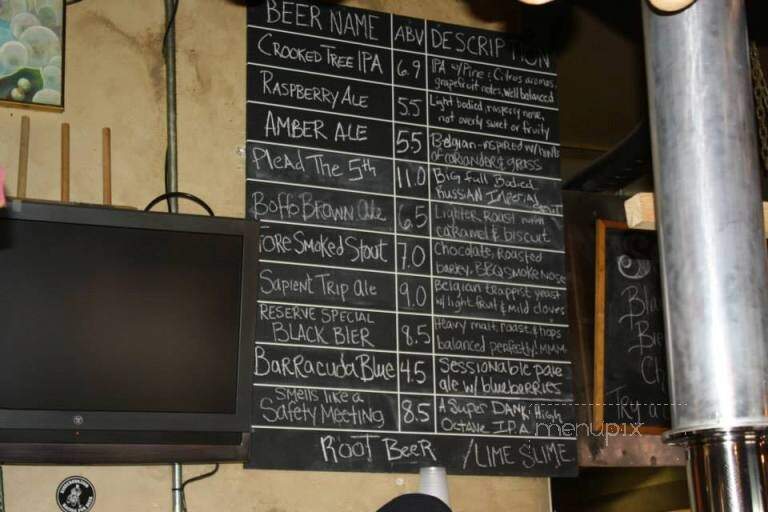 BEER NAME ABV DESCRIPTION
CROOKED TREE IPA 6.9 IPA w/Pine & Citrus aromas,
grapefruit notes, well balanced
RASPBERRY ALE 5.5 Light bodied, raspberry nose,
not overly sweet or fruity
AMBER ALE 5.5 Belgian-inspired w/hints
of coriander & grass
PLEAD THE 5th 11.0 BIG full Bodied
RUSSIAN IMPERIAL STOUT
BOFFO BROWN Ale 6.5 Lighter Roast with
caramel & biscuit
FORE SMOKED STOUT 7.0 Chocolate, Roasted
barley, BBQ smoke nose
SAPIENT TRIP Ale 9.0 Belgian trappist yeast
w/light fruit & mild cloves
RESERVE SPECIAL
BLACK BIER 8.5 Heavy malt, roast & hops
balanced perfectly! MMM
BARRACUDA BLUE 4.5 Sessionable pale
ale w/ blueberries
SMELLS LIKE A
SAFETY MEETING 8.5 A Super DANK, High
Octane IPA
ROOT BEER / LIME SLIME
Try a
menupix